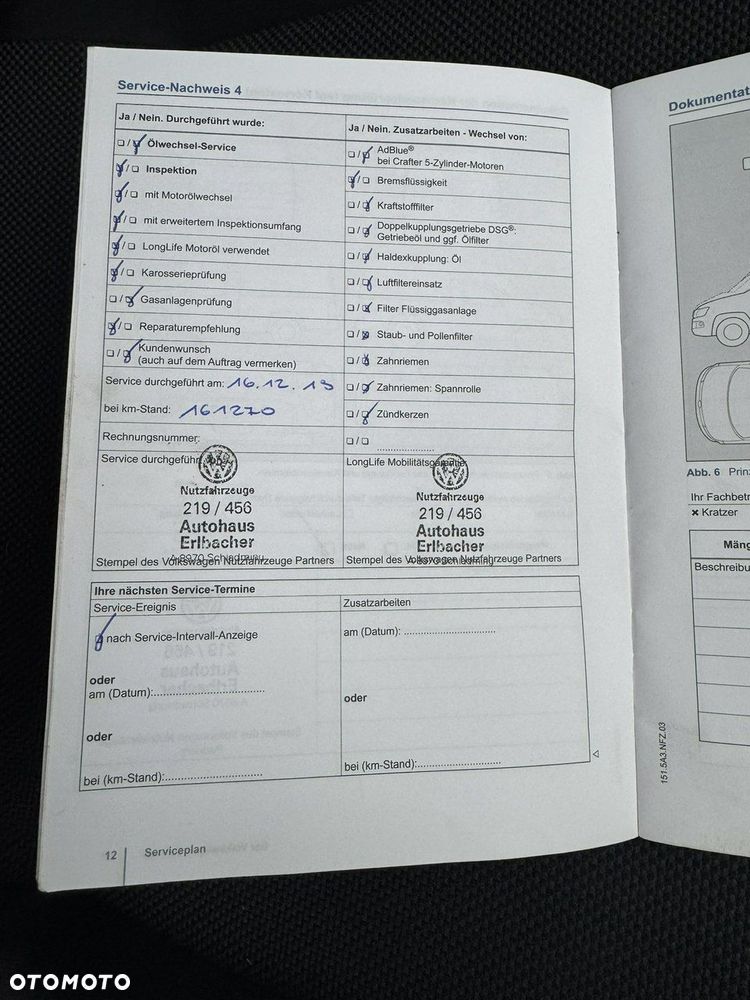 Service-Nachweis 4
Ja / Nein. Durchgeführt wurde:
❏ / ❏ Ölwechsel-Service
❏ / ❏ Inspektion
❏ / ❏ mit Motorölwechsel
❏ / ❏ mit erweitertem Inspektionsumfang
❏ / ❏ LongLife Motoröl verwendet
❏ / ❏ Karosserieprüfung
❏ / ❏ Gasanlagenprüfung
❏ / ❏ Reparaturempfehlung
❏ / ❏ Kundenwunsch
(auch auf dem Auftrag vermerken)
Service durchgeführt am: 16.12.19
bei km-Stand: 161270
Rechnungsnummer:
Service durchgeführt
Nutzfahrzeuge
219 / 456
Autohaus
Erlbacher
A-8970 Schladming
Stempel des Volkswagen Nutzfahrzeuge Partners
Ja / Nein. Zusatzarbeiten - Wechsel von:
❏ / ❏ AdBlue®
bei Crafter 5-Zylinder-Motoren
❏ / ❏ Bremsflüssigkeit
❏ / ❏ Kraftstofffilter
❏ / ❏ Doppelkupplungsgetriebe DSG®:
Getriebeöl und ggf. Ölfilter
❏ / ❏ Haldexkupplung: Öl
❏ / ❏ Luftfiltereinsatz
❏ / ❏ Filter Flüssiggasanlage
❏ / ❏ Staub- und Pollenfilter
❏ / ❏ Zahnriemen
❏ / ❏ Zahnriemen: Spannrolle
❏ / ❏ Zündkerzen
❏ / ❏ ....................
LongLife Mobilitätsgarantie
Nutzfahrzeuge
219 / 456
Autohaus
Erlbacher
A-8970 Schladming
Stempel des Volkswagen Nutzfahrzeuge Partners
Ihre nächsten Service-Termine
Service-Ereignis
❏ nach Service-Intervall-Anzeige
oder
am (Datum):..................................
oder
bei (km-Stand):..............................
Zusatzarbeiten
am (Datum): ..............................
oder
bei (km-Stand):...........................
12 Serviceplan
Dokumentat
Abb. 6 Prin
Ihr Fachbetr
× Kratzer
Mäng
Beschreibu
151.5A3.NFZ.03
OTOMOTO